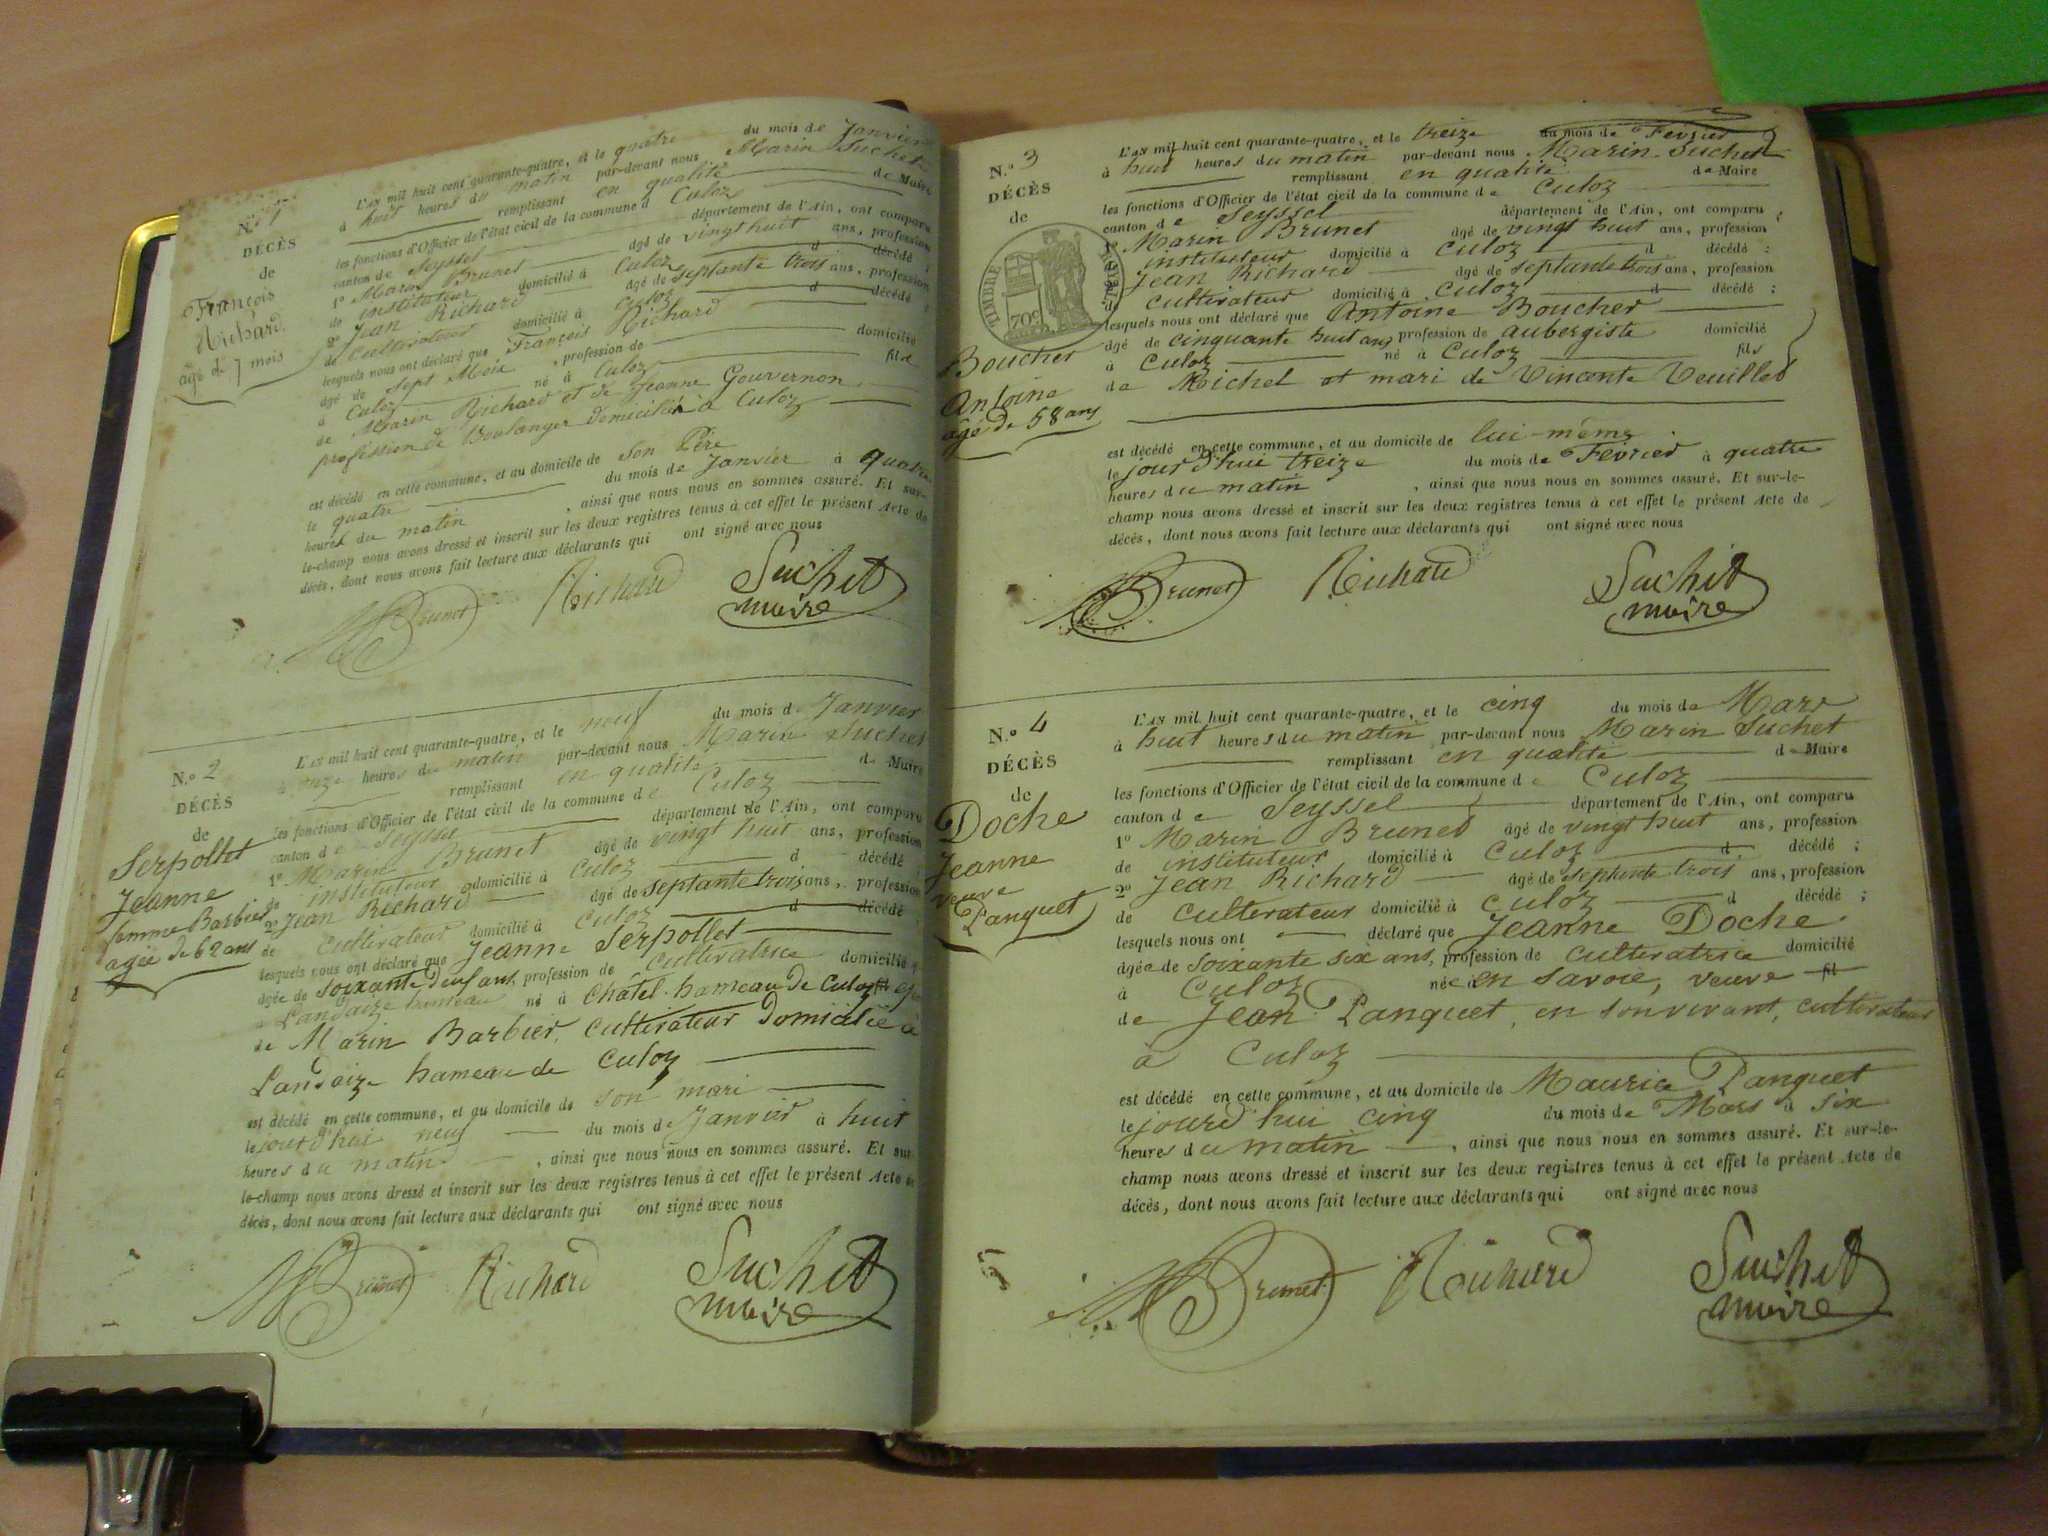 N.º 1
DÉCÈS
de
François
Richard
agé de 7 mois
L'AN mil huit cent quarante-quatre, et le quatre du mois de Janvier
à huit heures du matin par-devant nous Marin Suchet
remplissant en qualité de Maire
les fonctions d'Officier de l'état civil de la commune d Culoz
canton de Seyssel département de l'Ain, ont comparu
1º Marin Brunet âgé de vingt huit ans, profession
de instituteur domicilié à Culoz d décédé ;
2º Jean Richard âgé de septante trois ans, profession
de cultivateur domicilié à Culoz d décédé ;
lesquels nous ont déclaré que François Richard
âgé de sept Mois , profession de domicilié
à Culoz né à Culoz fils
de Marin Richard et de Jeanne Gouvernon
profession de Boulanger domicilié à Culoz
est décédé en cette commune, et au domicile de son Père
le quatre du mois de Janvier à quatre
heures du matin , ainsi que nous nous en sommes assuré. Et sur-
le-champ nous avons dressé et inscrit sur les deux registres tenus à cet effet le présent Acte de
décès, dont nous avons fait lecture aux déclarants qui ont signé avec nous
Brunet Richard Suchet
maire
N.º 2
DÉCÈS
de
Serpollet
Jeanne
femme Barbier
agée de 62 ans
L'AN mil huit cent quarante-quatre, et le neuf du mois d Janvier
à onze heures du matin par-devant nous Marin Suchet
remplissant en qualité de Maire
les fonctions d'Officier de l'état civil de la commune de Culoz
canton de Seyssel département de l'Ain, ont comparu
1º Marin Brunet âgé de vingt huit ans, profession
de instituteur domicilié à Culoz d décédé ;
2º Jean Richard âgé de septante trois ans, profession
de cultivateur domicilié à Culoz d décédé
lesquels nous ont déclaré que Jeanne Serpollet
âgée de soixante deux ans, profession de cultivatrice domicilié
à Landaize hameau né à Châtel hameau de Culoz
de Marin Barbier, cultivateur domicilié à
Landaize hameau de Culoz
est décédé en cette commune, et au domicile de son mari
le jourd'hui neuf du mois de Janvier à huit
heures du matin , ainsi que nous nous en sommes assuré. Et sur-
le-champ nous avons dressé et inscrit sur les deux registres tenus à cet effet le présent Acte de
décès, dont nous avons fait lecture aux déclarants qui ont signé avec nous
Brunet Richard Suchet
maire
N.º 3
DÉCÈS
de
TIMBRE ROYAL
70c
Boucher
Antoine
agé de 58 ans
L'AN mil huit cent quarante-quatre, et le treize du mois de Février
à huit heures du matin par-devant nous Marin Suchet
remplissant en qualité de Maire
les fonctions d'Officier de l'état civil de la commune de Culoz
canton de Seyssel département de l'Ain, ont comparu
1º Marin Brunet âgé de vingt huit ans, profession
instituteur domicilié à Culoz d décédé ;
Jean Richard âgé de septante trois ans, profession
de cultivateur domicilié à Culoz d décédé ;
lesquels nous ont déclaré que Antoine Boucher
âgé de cinquante huit ans profession de aubergiste domicilié
à Culoz né à Culoz fils
de Michel et mari de Vincente Veuillet
est décédé en cette commune, et au domicile de lui-même
le jourd'hui treize du mois de Février à quatre
heures du matin , ainsi que nous nous en sommes assuré. Et sur-le-
champ nous avons dressé et inscrit sur les deux registres tenus à cet effet le présent Acte de
décès, dont nous avons fait lecture aux déclarants qui ont signé avec nous
Brunet Richard Suchet
maire
N.º 4
DÉCÈS
de
Doche
Jeanne
veuve
Panquet
L'AN mil huit cent quarante-quatre, et le cinq du mois de Mars
à huit heures du matin par-devant nous Marin Suchet
remplissant en qualité de Maire
les fonctions d'Officier de l'état civil de la commune de Culoz
canton de Seyssel département de l'Ain, ont comparu
1º Marin Brunet âgé de vingt huit ans, profession
de instituteur domicilié à Culoz d décédé ;
2º Jean Richard âgé de septente trois ans, profession
de cultivateur domicilié à Culoz d décédé ;
lesquels nous ont déclaré que Jeanne Doche
âgée de soixante six ans, profession de cultivatrice domicilié
à Culoz née en Savoie, veuve fil
de Jean Panquet, en son vivant, cultivateur
à Culoz
est décédé en cette commune, et au domicile de Maurice Panquet
le jourd'hui cinq du mois de Mars à six
heures du matin , ainsi que nous nous en sommes assuré. Et sur-le-
champ nous avons dressé et inscrit sur les deux registres tenus à cet effet le présent Acte de
décès, dont nous avons fait lecture aux déclarants qui ont signé avec nous
Brunet Richard Suchet
maire